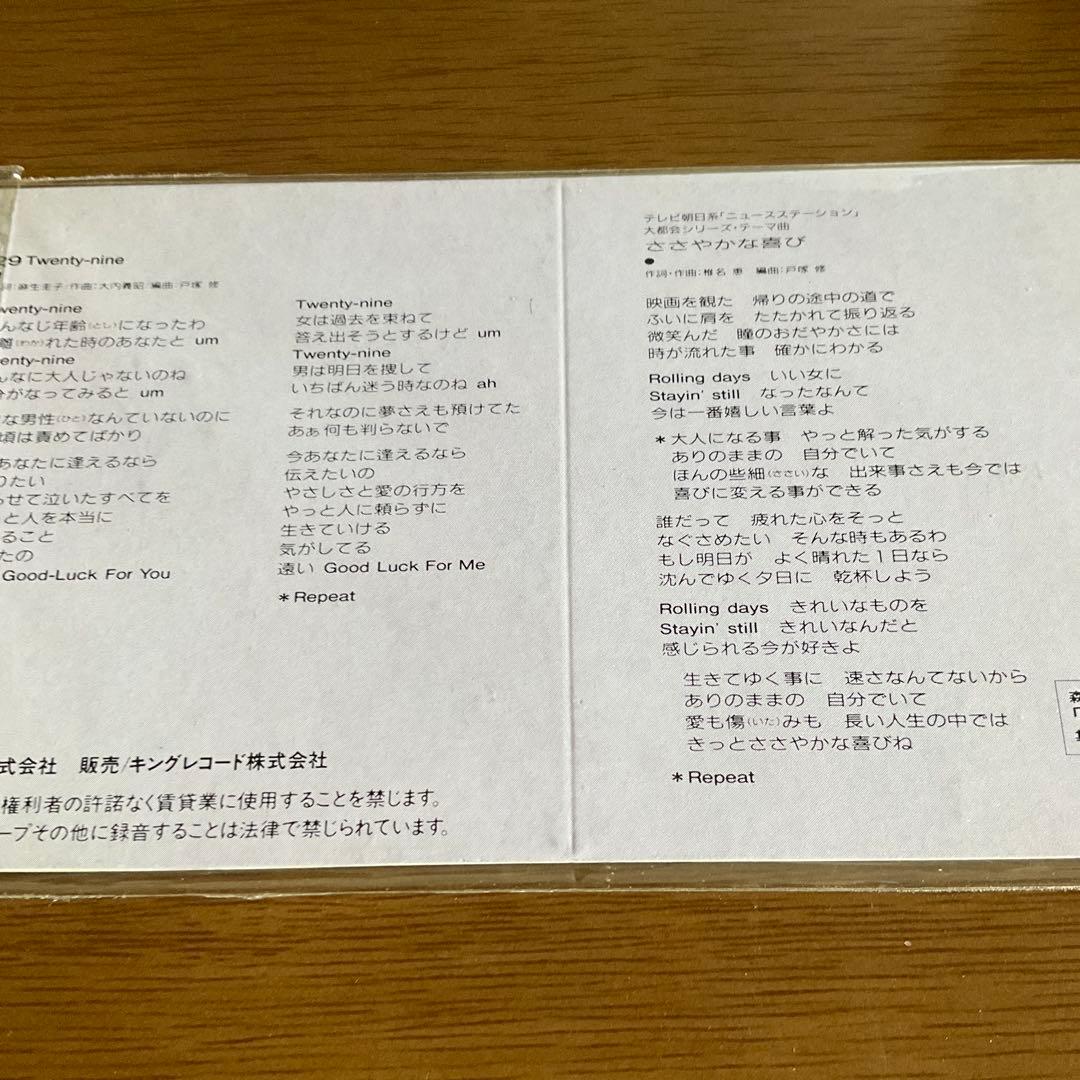 29 Twenty-nine
詞:麻生圭子/作曲:大内義昭/編曲:戸塚 修
enty-nine
んなじ年齢(とし)になったわ
離(わか)れた時のあなたと um
enty-nine
んなに大人じゃないのね
分がなってみると um
な男性(ひと)なんていないのに
頃は責めてばかり
あなたに逢えるなら
りたい
らせて泣いたすべてを
と人を本当に
ること
たの
Good-Luck For You
Twenty-nine
女は過去を束ねて
答え出そうとするけど um
Twenty-nine
男は明日を捜して
いちばん迷う時なのね ah
それなのに夢さえも預けてた
あぁ何も判らないで
今あなたに逢えるなら
伝えたいの
やさしさと愛の行方を
やっと人に頼らずに
生きていける
気がしてる
遠い Good Luck For Me
*Repeat
式会社 販売/キングレコード株式会社
権利者の許諾なく賃貸業に使用することを禁じます。
ープその他に録音することは法律で禁じられています。
テレビ朝日系「ニュースステーション」
大都会シリーズ・テーマ曲
ささやかな喜び
●
作詞・作曲:椎名 恵 編曲:戸塚 修
映画を観た 帰りの途中の道で
ふいに肩を たたかれて振り返る
微笑んだ 瞳のおだやかさには
時が流れた事 確かにわかる
Rolling days いい女に
Stayin' still なったなんて
今は一番嬉しい言葉よ
*大人になる事 やっと解った気がする
ありのままの 自分でいて
ほんの些細(ささい)な 出来事さえも今では
喜びに変える事ができる
誰だって 疲れた心をそっと
なぐさめたい そんな時もあるわ
もし明日が よく晴れた1日なら
沈んでゆく夕日に 乾杯しよう
Rolling days きれいなものを
Stayin' still きれいなんだと
感じられる今が好きよ
生きてゆく事に 速さなんてないから
ありのままの 自分でいて
愛も傷(いた)みも 長い人生の中では
きっとささやかな喜びね
*Repeat
森